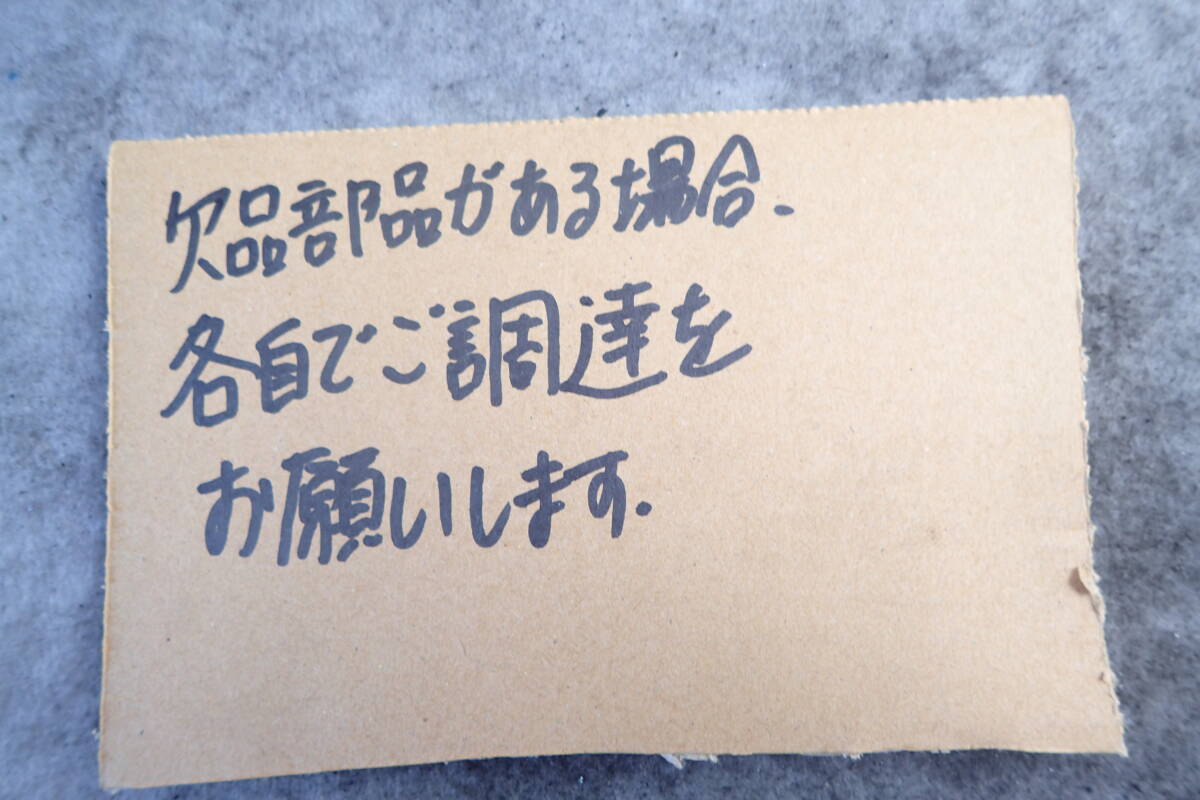 欠品部品がある場合、
各自でご調達を
お願いします.